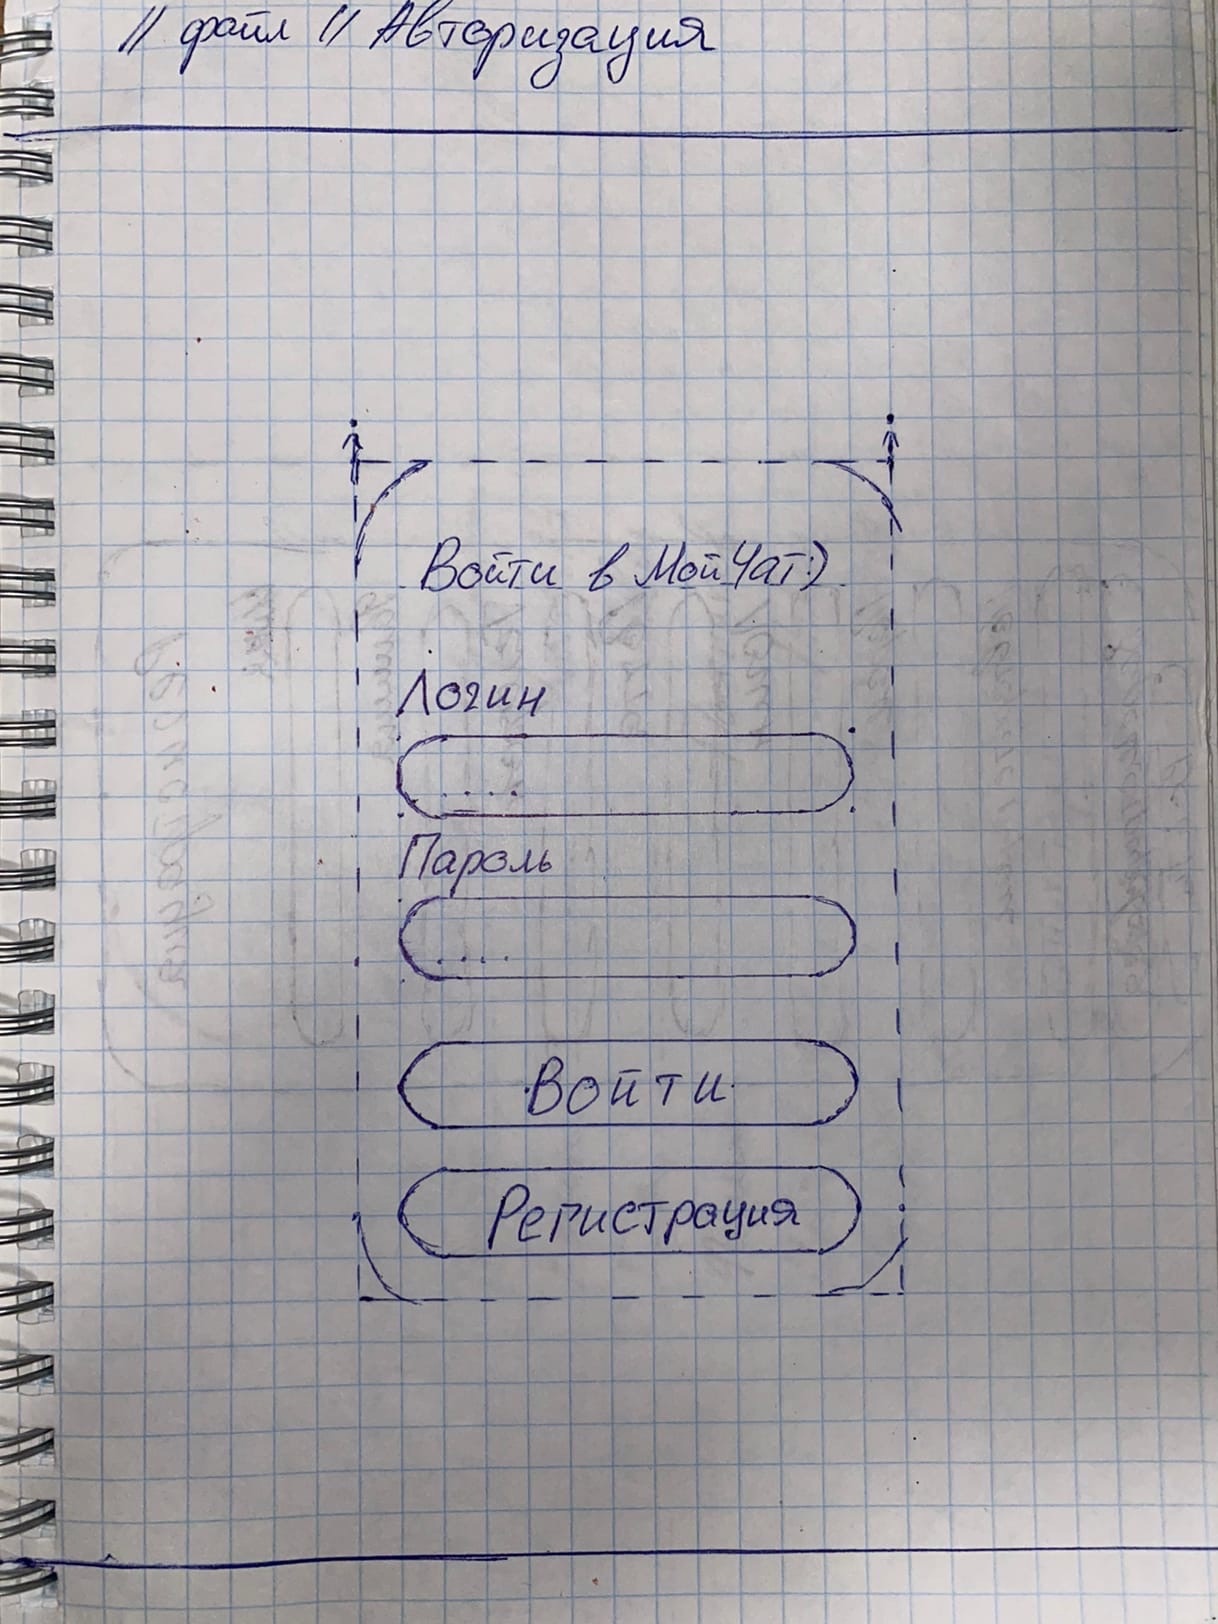 // файл // Авторизация
Войти в МойЧат:)
Логин
....
Пароль
....
Войти
Регистрация